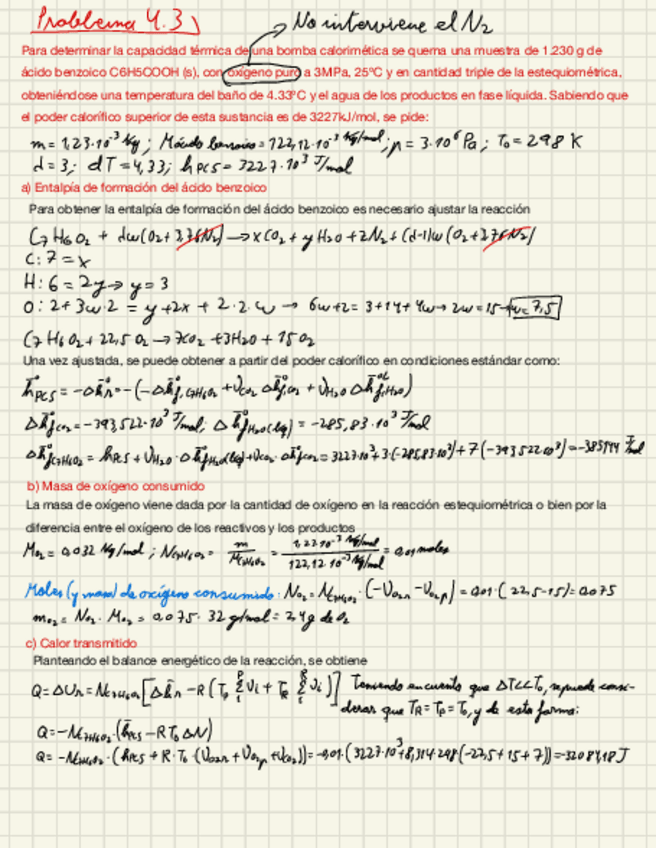 Problema 4.3) → No interviene el N₂
Para determinar la capacidad térmica de una bomba calorimétrica se quema una muestra de 1.230 g de
ácido benzoico C6H5COOH (s), con oxígeno puro a 3MPa, 25ºC y en cantidad triple de la estequiométrica,
obteniéndose una temperatura del baño de 4.33ºC y el agua de los productos en fase líquida. Sabiendo que
el poder calorífico superior de esta sustancia es de 3227kJ/mol, se pide:
m = 1,23·10⁻³ Kg; Mácido benzoico = 122,12·10⁻³ Kg/mol; p = 3·10⁶ Pa; T₀ = 298 K
d = 3; dT = 4,33; hPCS = 3227·10³ J/mol
a) Entalpía de formación del ácido benzoico
Para obtener la entalpía de formación del ácido benzoico es necesario ajustar la reacción
C₇H₆O₂ + dw(O₂+3,76N₂) → xCO₂ + yH₂O + zN₂ + (d-1)w(O₂+3,76N₂)
C: 7 = x
H: 6 = 2y → y = 3
O: 2 + 3w·2 = y + 2x + 2·2·w → 6w+2 = 3+14+4w → 2w = 15 → w = 7,5
C₇H₆O₂ + 22,5 O₂ → 7CO₂ + 3H₂O + 15O₂
Una vez ajustada, se puede obtener a partir del poder calorífico en condiciones estándar como:
h̄°PCS = -Δh̄°r = -(-Δh̄°f,C₇H₆O₂ + νCO₂ Δh̄°f,CO₂ + νH₂O Δh̄°f,H₂O)
Δh̄°fCO₂ = -393,522·10³ J/mol; Δh̄°fH₂O(liq) = -285,83·10³ J/mol
Δh̄°fC₇H₆O₂ = hPCS + νH₂O · Δh̄°fH₂O(liq) + νCO₂ · Δh̄°fCO₂ = 3227·10³ + 3·(-285,83·10³) + 7(-393,522·10³) = -385144 J/mol
b) Masa de oxígeno consumido
La masa de oxígeno viene dada por la cantidad de oxígeno en la reacción estequiométrica o bien por la
diferencia entre el oxígeno de los reactivos y los productos
MO₂ = 0,032 Kg/mol; NC₇H₆O₂ = m/MC₇H₆O₂ = 1,23·10⁻³ Kg/mol / 122,12·10⁻³ Kg/mol = 0,01 moles
Moles (y masa) de oxígeno consumido: NO₂ = NC₇H₆O₂ · (-νO₂R - νO₂P) = 0,01·(22,5-15) = 0,075
mO₂ = NO₂ · MO₂ = 0,075 · 32 g/mol = 2,4 g de O₂
c) Calor transmitido
Planteando el balance energético de la reacción, se obtiene
Q = ΔUr = NC₇H₆O₂ [Δh̄r - R(TP ΣP νi + TR ΣR νi)] Teniendo en cuenta que ΔT<<T₀, se puede consi-
derar que TR = TP = T₀, y de esta forma:
Q = -NC₇H₆O₂ · (h̄PCS - R T₀ ΔN)
Q = -NC₇H₆O₂ · (hPCS + R·T₀·(νO₂R + νO₂P + νCO₂)) = -0,01·(3227·10³ + 8,314·298(-22,5+15+7)) = -32084,18 J